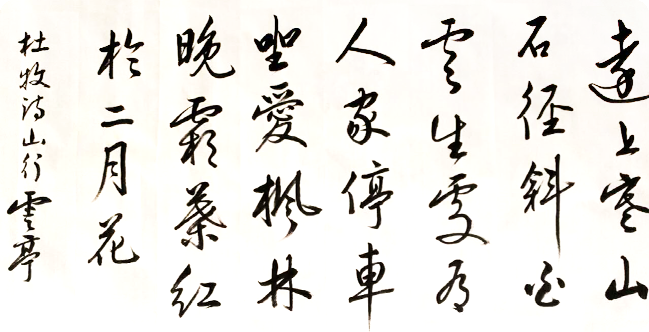 遠上寒山
石徑斜白
雲生處有
人家停車
坐愛楓林
晚霜葉紅
於二月花
杜牧詩山行 雲亭